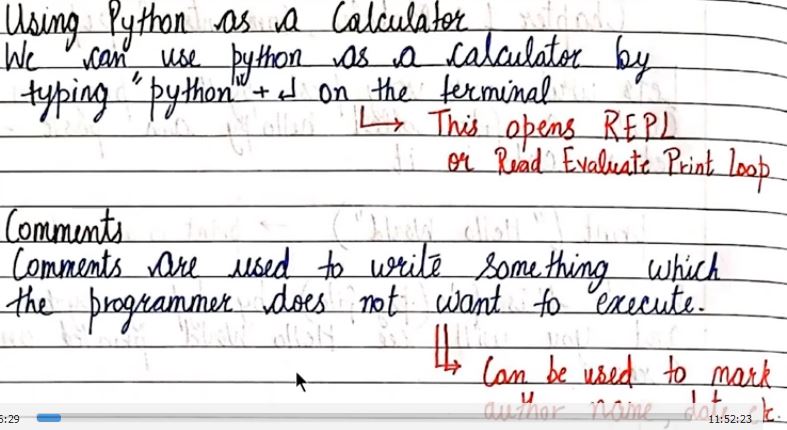 Using Python as a Calculator
We can use python as a calculator by
typing "python" + ↲ on the terminal
↳ This opens REPL
or Read Evaluate Print loop
Comments
Comments are used to write something which
the programmer does not want to execute.
↳ Can be used to mark
author name, date etc.
6:29
11:52:23